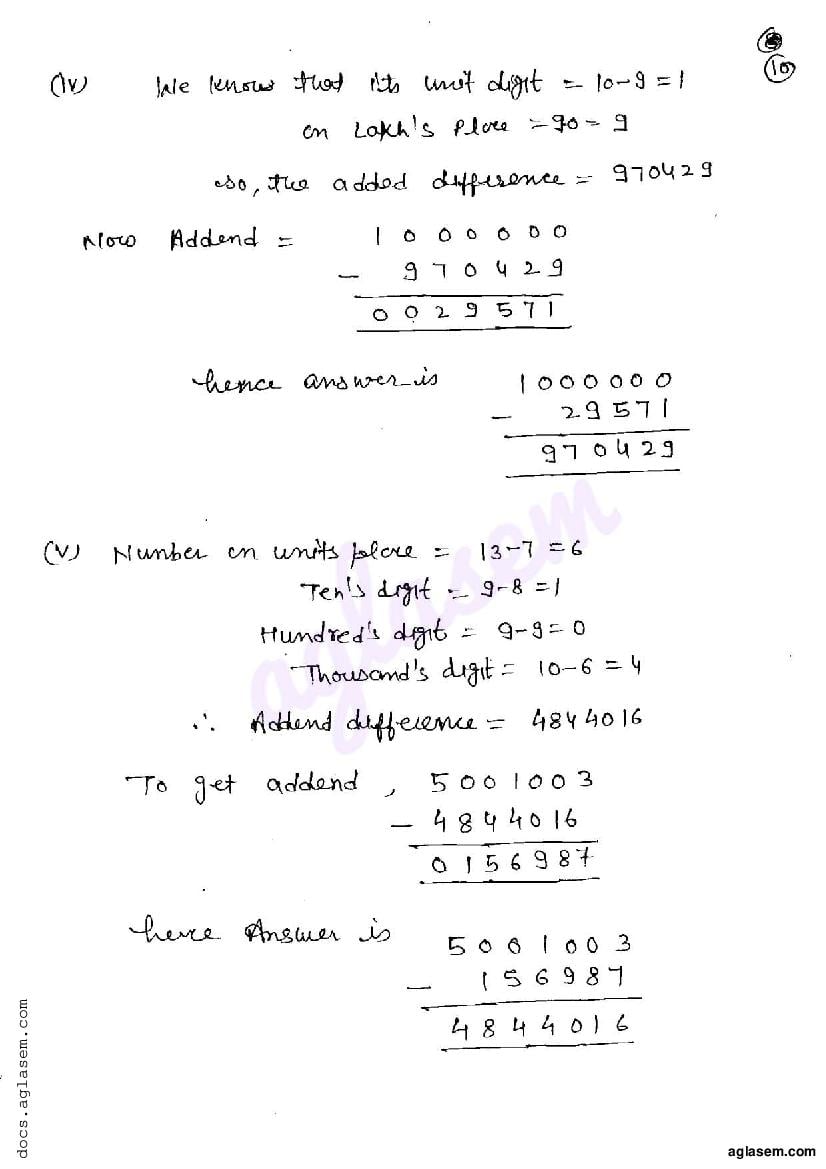 10
(iv) We know that its unit digit = 10-9 = 1
on Lakh's Place = 90 = 9
so, the added difference = 970429
Now Addend = 1 0 0 0 0 0 0
- 9 7 0 4 2 9
0 0 2 9 5 7 1
hence answer is 1 0 0 0 0 0 0
- 2 9 5 7 1
9 7 0 4 2 9
(v) Number on units place = 13-7 = 6
Ten's digit = 9-8 = 1
Hundred's digit = 9-9 = 0
Thousand's digit = 10-6 = 4
∴ Addend difference = 4844016
To get addend, 5 0 0 1 0 0 3
- 4 8 4 4 0 1 6
0 1 5 6 9 8 7
hence Answer is 5 0 0 1 0 0 3
- 1 5 6 9 8 7
4 8 4 4 0 1 6
aglasem
docs.aglasem.com
aglasem.com